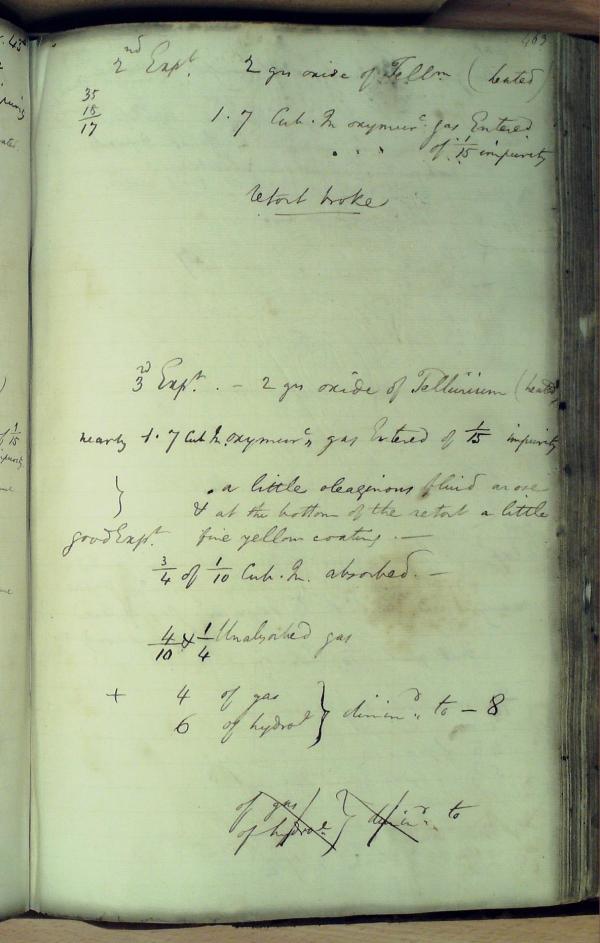 463
2nd Expt. 2 grs oxide of Tellm (heated)
35
18
17
1.7 Cub. In oxymurc. gas Entered
of 1/15 impurity
retort broke
3rd Expt. - 2 grs oxide of Tellurium (heated)
nearly 1.7 Cub In. oxymurc. gas Entered of 1/15 impurity
. a little oleaginous fluid arose
& at the bottom of the retort a little
good Expt. fine yellow coating. -
3/4 of 1/10 Cub. In. absorbed. -
4/10 & 1/4 Unabsorbed gas
+ 4 of gas
6 of hydrol } dimind. to - 8
of gas
of hydrol. } dimind. to